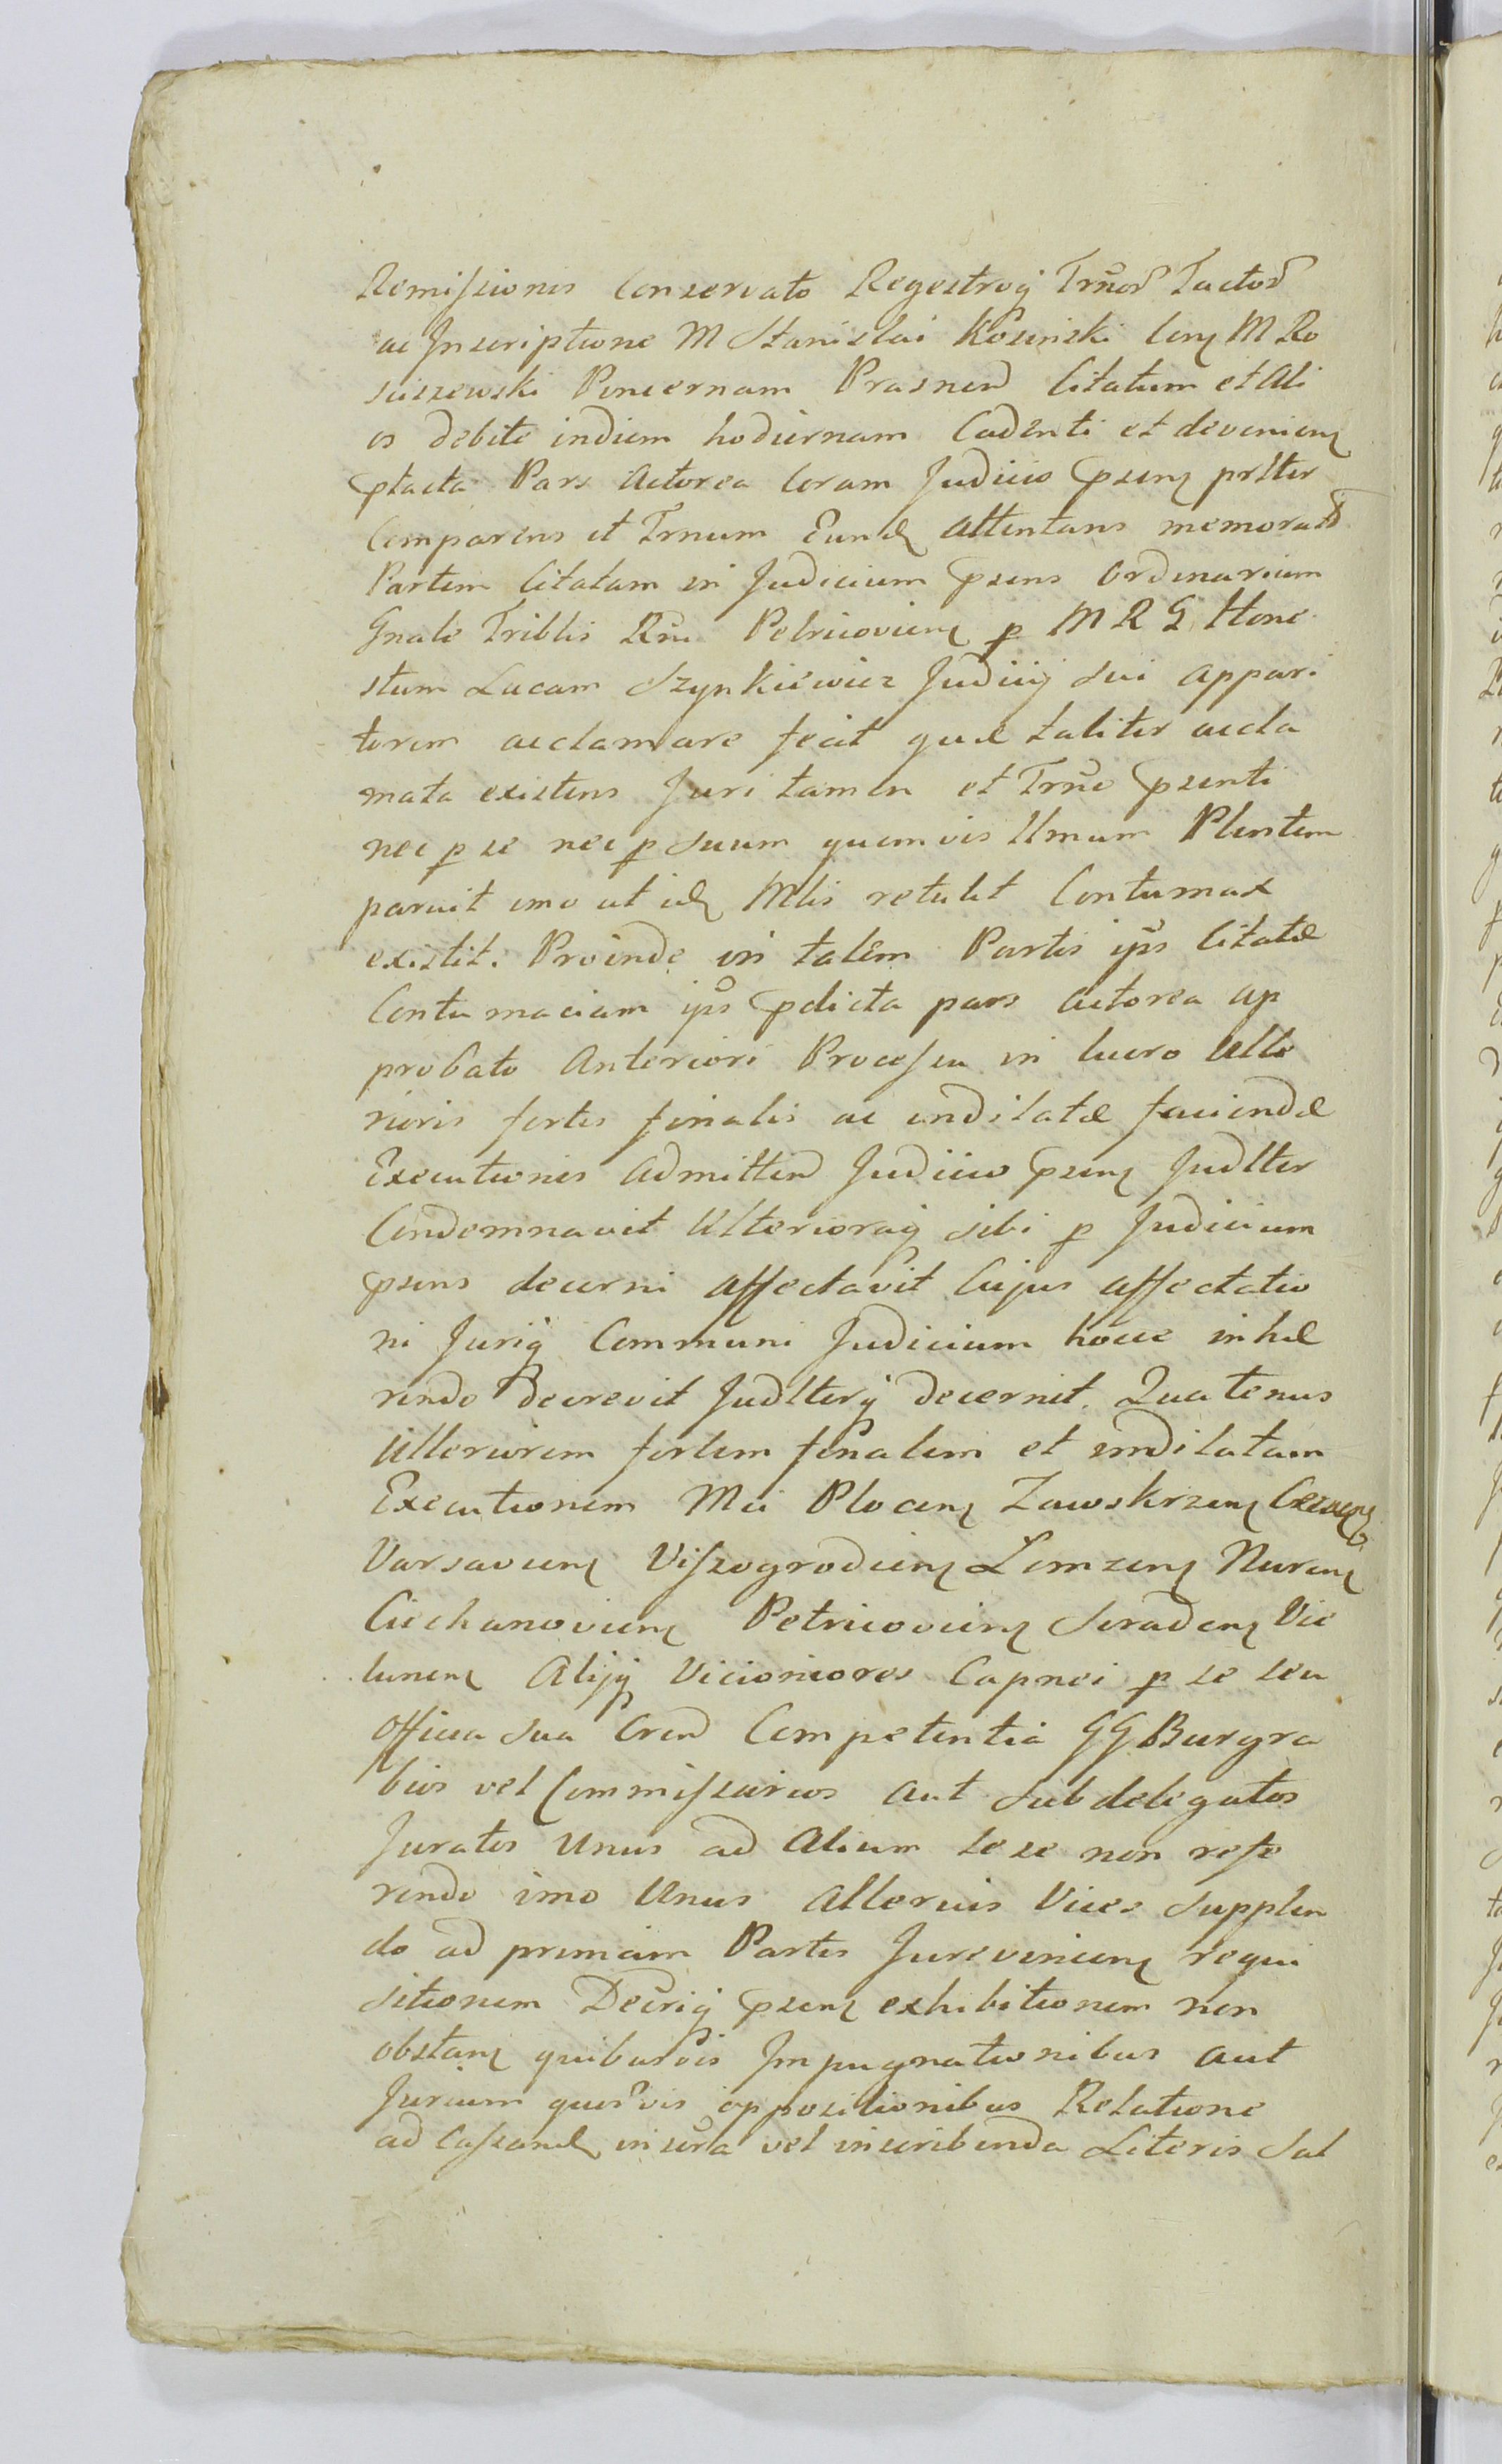 Remissionis Conservato Regestroq Trnor Tactor
ac Inscriptione M Stanislai Kosinski Cenq M Ro
sciszewski Pincernam Prasnen Citatum et Ali
os debite in diem hodiernam Cadenti et devenienq
ptacta Pars Actorea Coram Judicio psenq prltter
Comparens et Trnum Eundq attentans memorat
Partem Citatam in Judicium psens Ordinarium
Gnale Triblis Rni Petricoviens p M R G Hone
stum Lucam Szynkiewicz Judicij sui appari
torem acclamare fecit quæ taliter accla
mata existens Juri tamen et Trno psenti
nec p se nec p suum quemvis Umum Plentem
paruit imo ut idq Mlis retulit Contumax
exstitit. Proinde in talem Partis ips Citatæ
Contumaciam ips pdicta pars Actorea ap
probato Anteriori Processu in lucro Ulte
rioris fortis finalis ac indilatæ faciendæ
Executionis Admitten Judicio psenq Judlter
Condemnavit Ulterioraq sibi p Judicium
psens decerni affectavit Cujus affectatio
ni Juriq Communi Judicium hocce inhæ
rendo Decrevit Judlterq decernit. Quatenus
Ulteriorem fortem finalem et indilatam
Executionem Mci Plocenq Zawskrzenq Czersq
Varsavienq Viszogrodienq Lomzenq Nurenq
Ciechanovienq Petricovienq Siradenq Vie
lunenq Alijq Viciniores Capnei p se seu
Officia sua Cren Competentia GG Burgra
bios vel Commissarios aut Subdelegatos
Juratos Unus ad Alium se se non refe
rendo imo Unus Alterius Vices supplen
do ad primam Partis Jurevincenq requi
sitionem Decriq psenq exhibitionem non
obstanq quibusvis Impugnationibus aut
Jurium quorvis oppositionibus Relatione
ad Cassandq inscra vel inscribenda Literis Sal